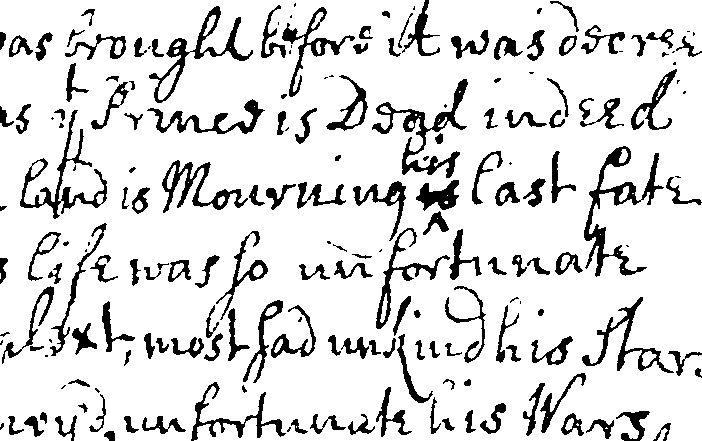 was brought before it was decree
as yt Prince is Dead indeed
land is Mourning his last fate
life was so unfortunate
most sad unkind his Star
unfortunate his Wars,